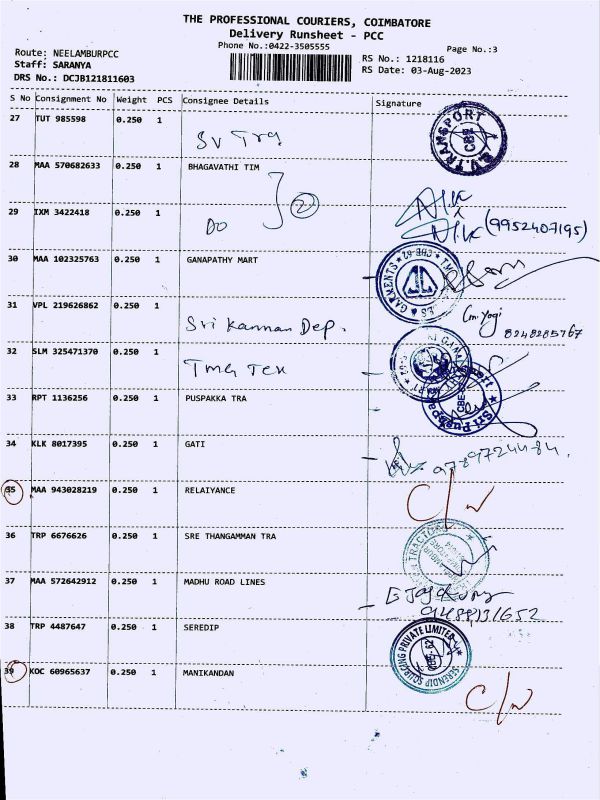 THE PROFESSIONAL COURIERS, COIMBATORE
Delivery Runsheet - PCC
Phone No.:0422-3505555
Page No.:3
Route: NEELAMBURPCC
Staff: SARANYA
DRS No.: DCJB121811603
RS No.: 1218116
RS Date: 03-Aug-2023
S No Consignment No Weight PCS Consignee Details Signature
27 TUT 985598 0.250 1 SV Trg
S.V. TRANSPORT CBE
28 MAA 570682633 0.250 1 BHAGAVATHI TIM
29 IXM 3422418 0.250 1 DO 2
(9952407195)
30 MAA 102325763 0.250 1 GANAPATHY MART
31 VPL 219626862 0.250 1 Sri Kannan Dep.
8248285767
32 SLM 325471370 0.250 1 TMG Tex
33 RPT 1136256 0.250 1 PUSPAKKA TRA
34 KLK 8017395 0.250 1 GATI
9789724484.
35 MAA 943028219 0.250 1 RELAIYANCE C/N
36 TRP 6676626 0.250 1 SRE THANGAMMAN TRA
37 MAA 572642912 0.250 1 MADHU ROAD LINES
38 TRP 4487647 0.250 1 SEREDIP
SERENDIP SOURCING PRIVATE LIMITED
39 KOC 60965637 0.250 1 MANIKANDAN C/N